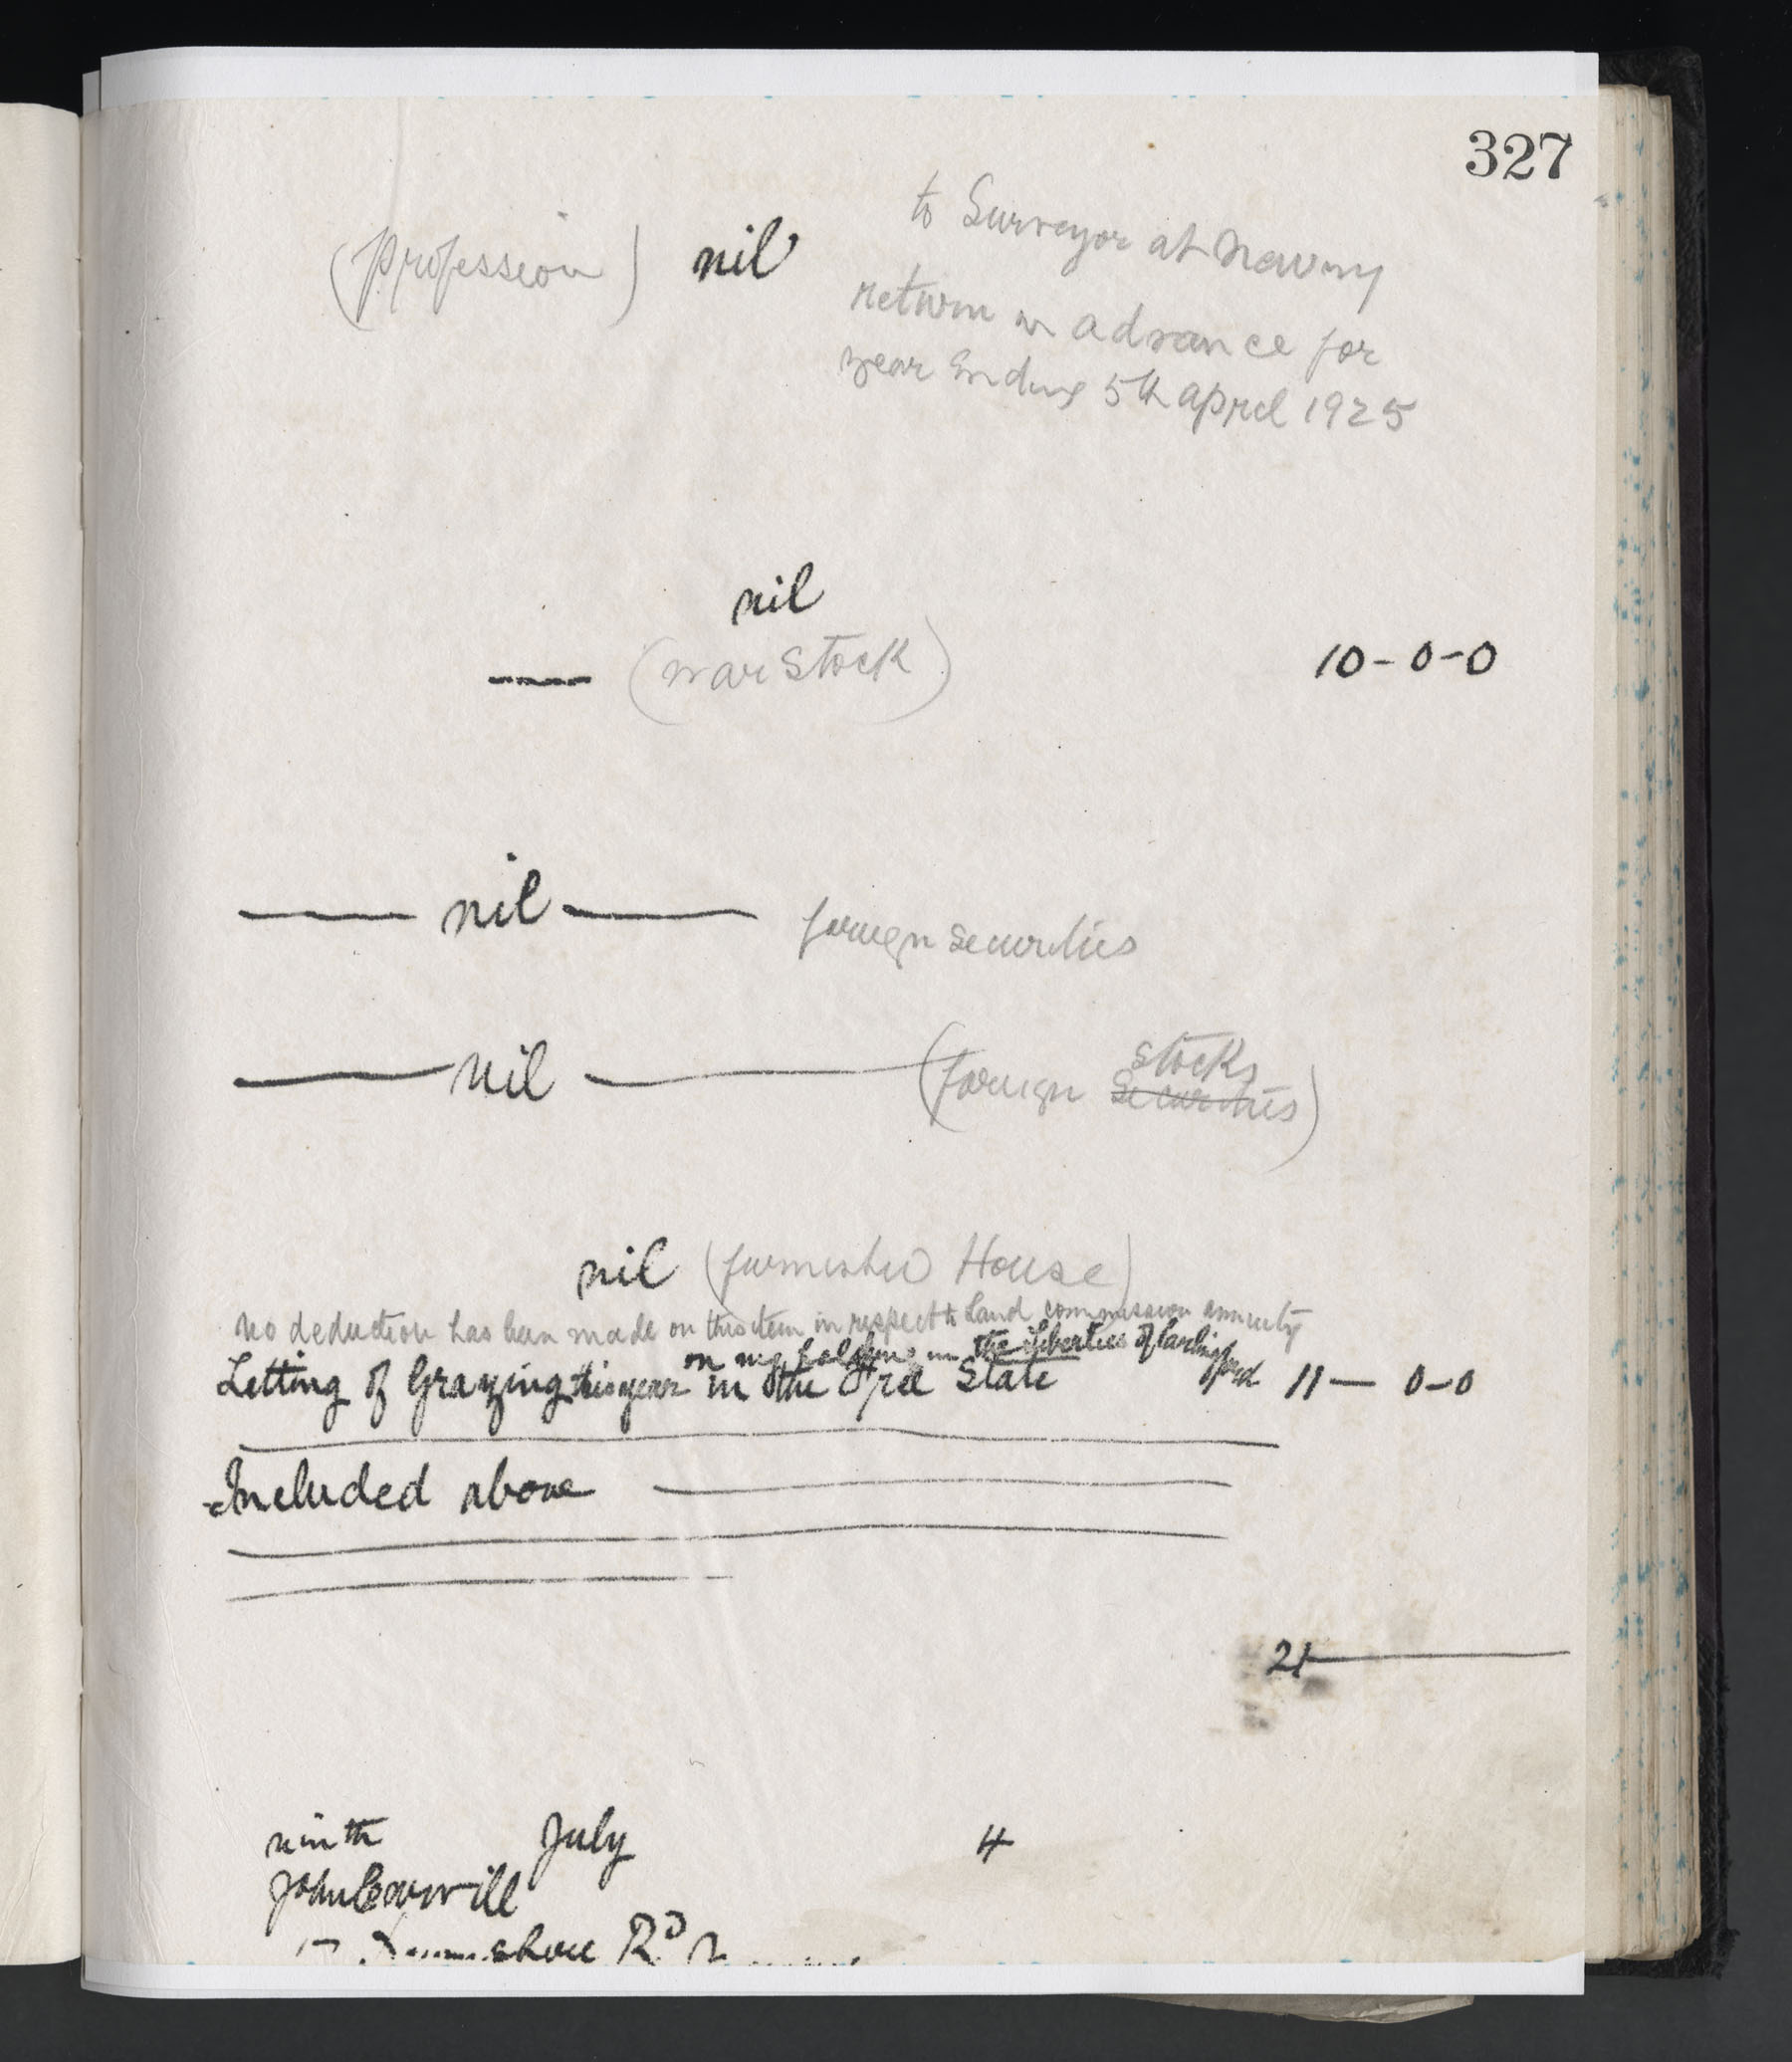 327
to Surveyor at Newry
(profession) nil
return in advance for
year Ending 5th april 1925
nil
(war Stock) 10-0-0
nil foreign securities
nil (foreign Securities stocks)
nil (furnished House)
no deduction has been made on this item in respect to Land commission annuity
on my holding in the liberties of Carlingford
Letting of Grazing this year in the Free State 11 — 0-0
Included above
21
ninth July 4
John
Rd